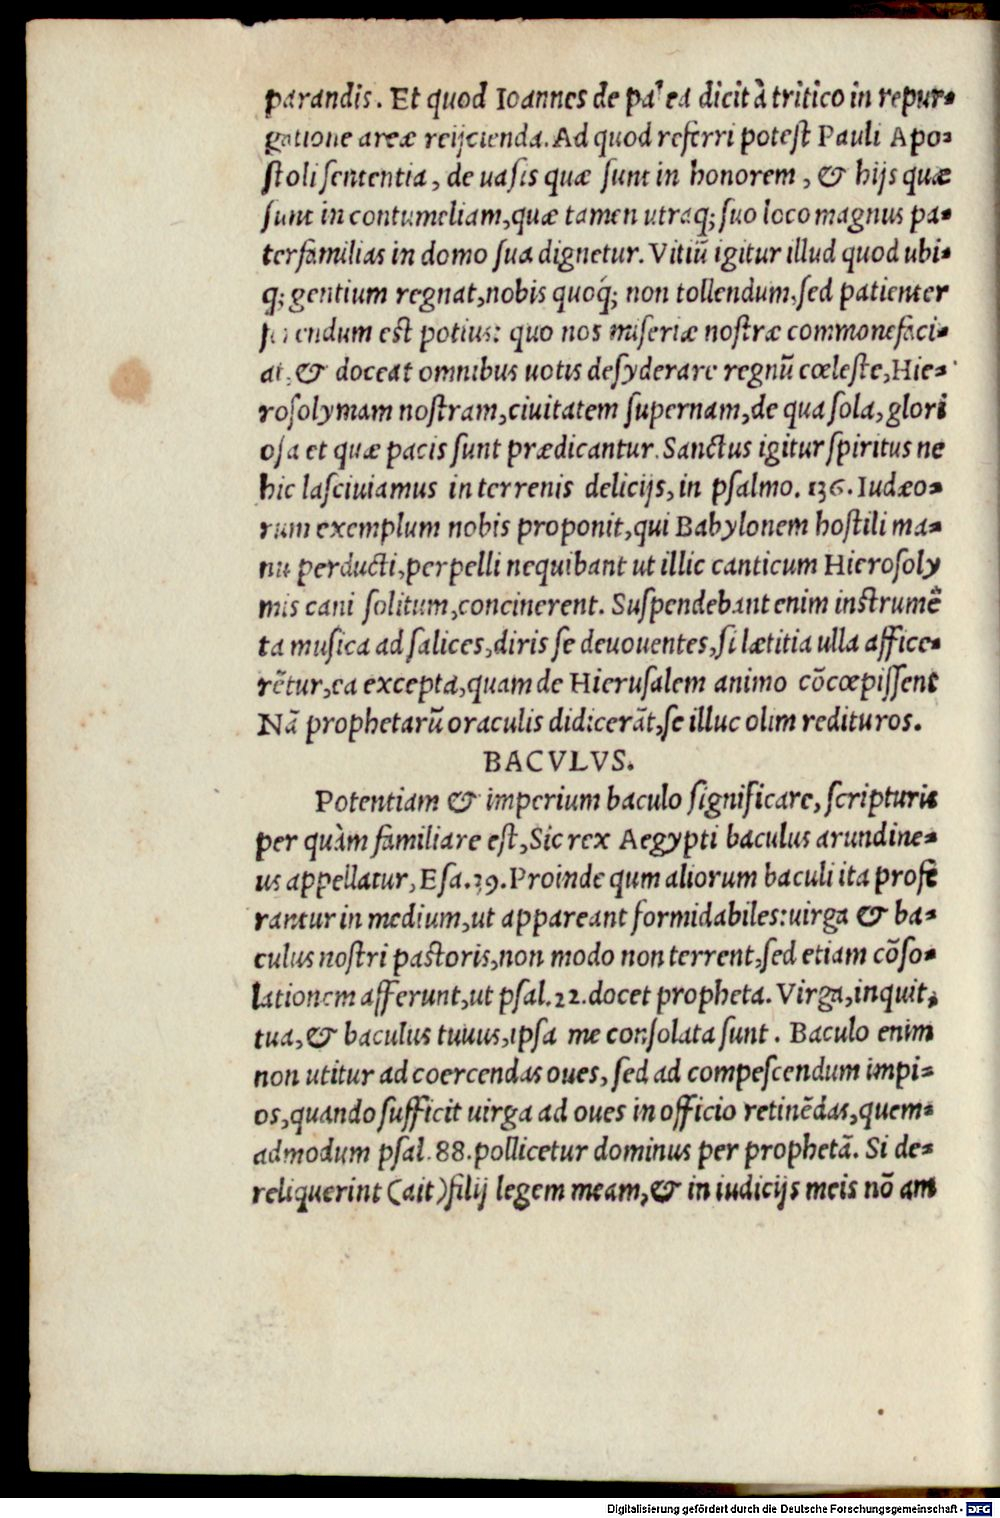 parandis. Et quod Ioannes de palea dicit à tritico in repur-
gatione areæ reijcienda. Ad quod referri potest Pauli Apo-
stoli sententia, de uasis quæ sunt in honorem, & hijs quæ
sunt in contumeliam, quæ tamen utraq; suo loco magnus pa-
terfamilias in domo sua dignetur. Vitiũ igitur illud quod ubi-
q; gentium regnat, nobis quoq; non tollendum, sed patienter
ferendum est potius: quo nos miseriæ nostræ commonefaci-
at, & doceat omnibus uotis desyderare regnũ cœleste, Hie-
rosolymam nostram, ciuitatem supernam, de qua sola, glori
osa et quæ pacis sunt prædicantur. Sanctus igitur spiritus ne
hic lasciuiamus in terrenis delicijs, in psalmo. 136. Iudæo-
rum exemplum nobis proponit, qui Babylonem hostili ma-
nu perducti, perpelli nequibant ut illic canticum Hierosoly
mis cani solitum, concinerent. Suspendebant enim instrumẽ
ta musica ad salices, diris se deuouentes, si lætitia ulla affice-
rẽtur, ea excepta, quam de Hierusalem animo cõcœpissent
Nã prophetarũ oraculis didicerãt, se illuc olim redituros.
BACVLVS.
Potentiam & imperium baculo significare, scripturis
per quàm familiare est, Sic rex Aegypti baculus arundine-
us appellatur, Esa. 39. Proinde qum aliorum baculi ita profe
rantur in medium, ut appareant formidabiles: uirga & ba-
culus nostri pastoris, non modo non terrent, sed etiam cõso-
lationem afferunt, ut psal. 22. docet propheta. Virga, inquit,
tua, & baculus tuuus, ipsa me consolata sunt. Baculo enim
non utitur ad coercendas oues, sed ad compescendum impi-
os, quando sufficit uirga ad oues in officio retinẽdas, quem-
admodum psal. 88. pollicetur dominus per prophetã. Si de-
reliquerint (ait) filij legem meam, & in iudicijs meis nõ am
Digitalisierung gefördert durch die Deutsche Forschungsgemeinschaft - DFG